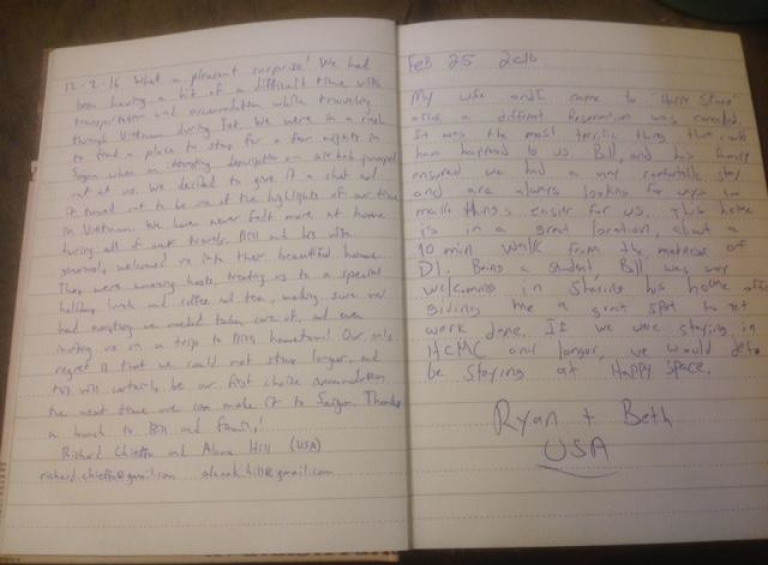 12-2-16 What a pleasant surprise! We had
been having a bit of a difficult time with
transportation and accomodation while traveling
through Vietnam during Tet. We were in a rush
to find a place to stay for a few nights in
Saigon when an intriguing description on airbnb jumped
out at us. We decided to give it a shot and
it turned out to be one of the highlights of our time
in Vietnam. We have never felt more at home
during all of our travels. Bill and his wife
welcomed us into their beautiful home.
They were amazing hosts, treating us to a special
holiday lunch and coffee and tea, making sure we
had everything we needed taken care of, and even
inviting us on a trip to Bill's hometown! Our only
regret is that we could not stay longer, and
this will certainly be our first choice accomodation
the next time we can make it to Saigon. Thanks
a bunch to Bill and family!
Richard Chieffo and Alana Hill (USA)
richard.chieffo@gmail.com @gmail.com
Feb 25 2016
My wife and I came to "Happy Space"
after a different reservation was canceled.
It was the most terrific thing that could
have happened to us. Bill, and his family
ensured we had a very comfortable stay
and are always looking for ways to
make things easier for us. This home
is in a great location, about a
10 min walk from the madness of
D1. Being a student, Bill was very
welcoming in sharing his home office
giving me a great spot to get
work done. If we were staying in
HCMC any longer, we would def
be staying at Happy Space.
Ryan + Beth
USA